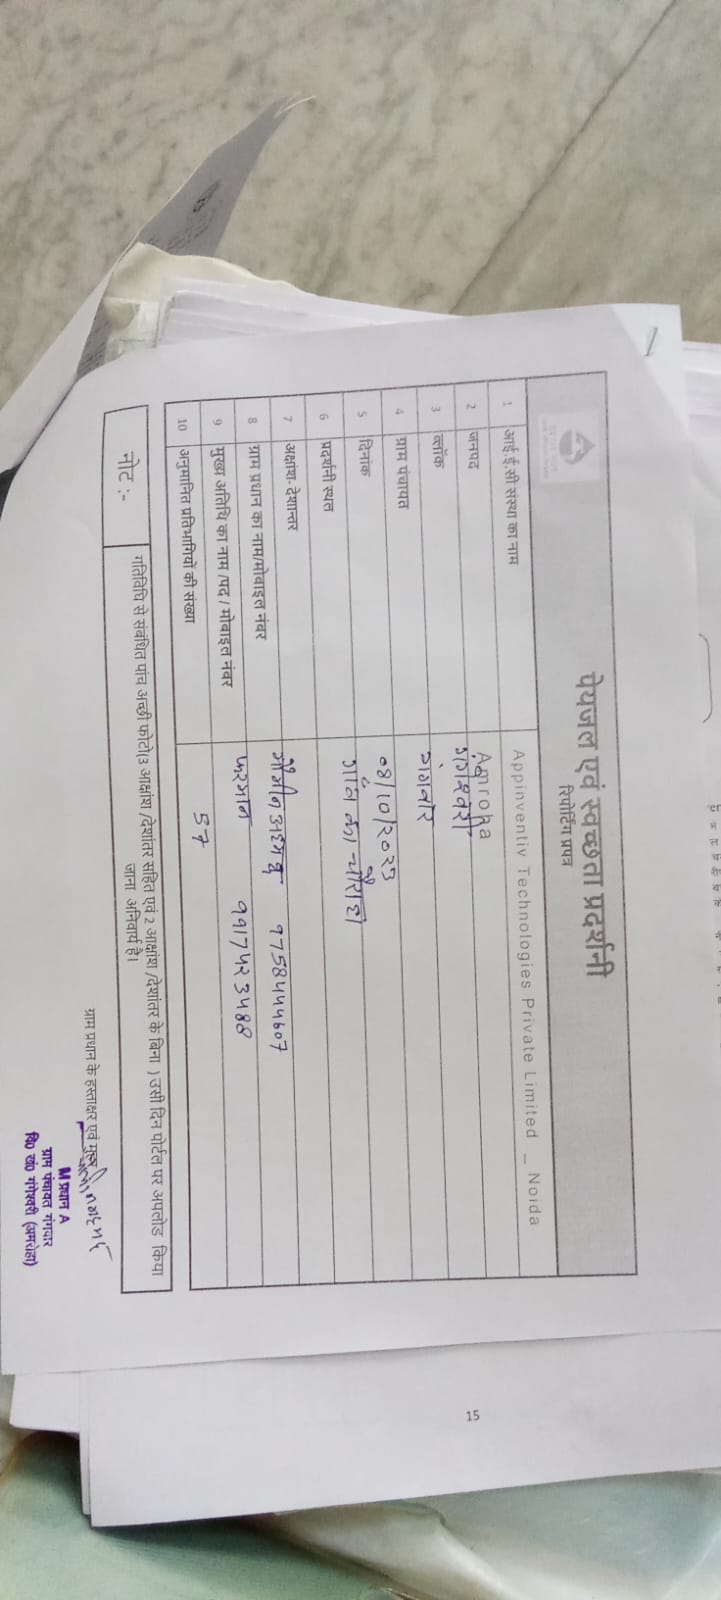 पेयजल एवं स्वच्छता प्रदर्शनी
रिपोर्टिंग प्रपत्र
1 आई.ई.सी संस्था का नाम Appinventiv Technologies Private Limited _ Noida
2 जनपद Amroha
3 ब्लॉक गंगेश्वरी
4 ग्राम पंचायत गंगवार
5 दिनांक ०४/१०/२०२३
6 प्रदर्शनी स्थल गाँव का चौराहा
7 अक्षांश- देशान्तर
8 ग्राम प्रधान का नाम/मोबाइल नंबर
9 मुख्य अतिथि का नाम /पद / मोबाइल नंबर फरमान
10 अनुमानित प्रतिभागियों की संख्या 57
नोट :-
गतिविधि से संबंधित पांच अच्छी फोटो(3 आक्षांश /देशांतर सहित एवं 2 आक्षांश /देशांतर के बिना ) उसी दिन पोर्टल पर अपलोड किया
जाना अनिवार्य है।
ग्राम प्रधान के हस्ताक्षर एवं मुहर
प्रधान
ग्राम पंचायत गंगवार
वि० खं० गंगेश्वरी (अमरोहा)
15